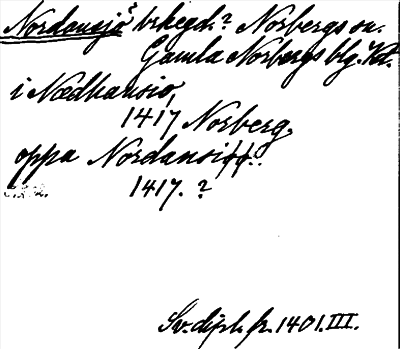 Nordansjö brkegd.? Norbergs sn.
Gamla Norbergs blg. Vstl.
i Nædhansio,
1417 Norberg.
oppa Nordansiff..
1417. ?
Sv. dipl. fr. 1401. III.